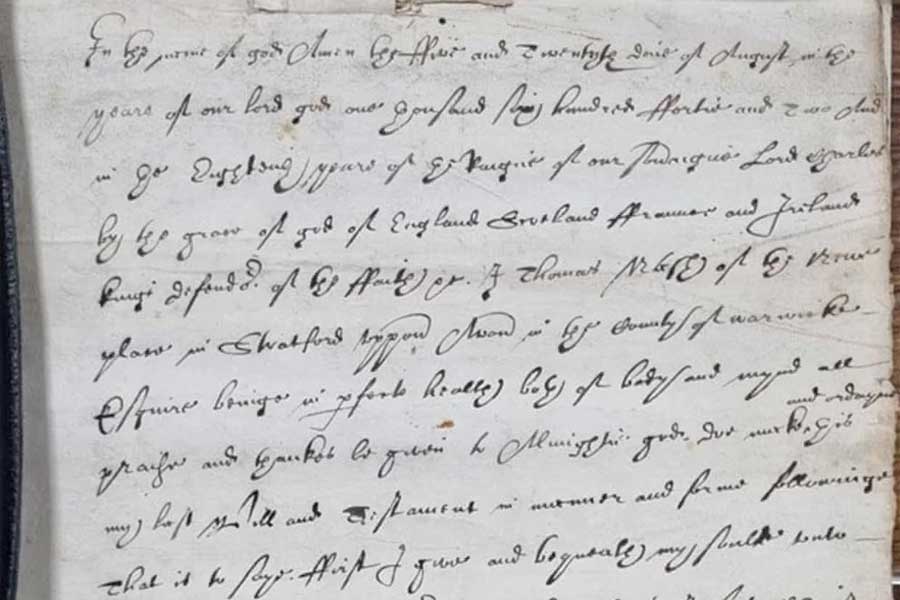 In the name of god Amen the ffive and Twentyth daie of August in the
yeare of our lord god one thousand six hundred ffortie and Two And
in the Eighteenth yeare of the Raigne of our Soveraigne Lord Charles
by the grace of god of England Scotland ffrance and Ireland
kinge defendor of the ffaith etc. I Thomas Nash of the Newe
place in Stratford uppon Avon in the County of warwicke
Esquire beinge in pfecte health both of body and mynd all
and ordayne
praise and thankes be given to Almightie god doe make this
my last Will and Testament in manner and forme followinge
That is to saye. ffirst I give and bequeath my soule unto